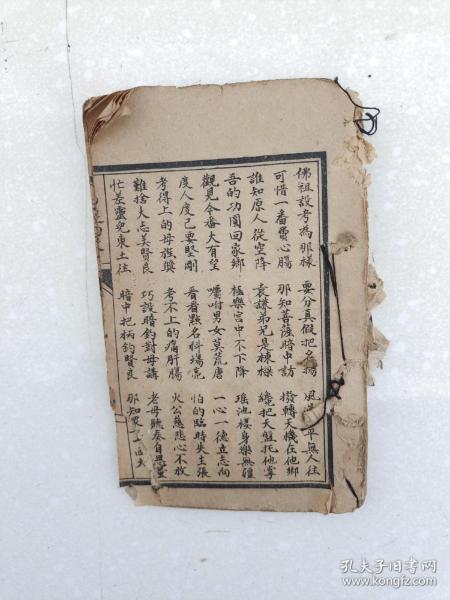 佛祖設考為那樣 要分真假把名揚 風
可惜一番費心腸 那知菩薩暗中訪 撥轉天機在他鄉
誰知原人從空降 袁讓弟兄是棟樑 纔把天盤托他掌
吾的功圓回家鄉 極樂宮中不下降 瑤池穩身樂無疆
觀見今番大有望 囑咐男女莫荒唐 一心一德立志向
度人度己要堅剛 看看點名科場 怕的臨時失主張
考得上的母旌獎 考不上的痛肝腸 火公慈悲心不放
難捨大志美賢良 巧設暗釣對母講 老母聽奏自思量
忙差靈兒東土往 暗中把柄釣賢良 那知眾
孔夫子旧书网
www.kongfz.com